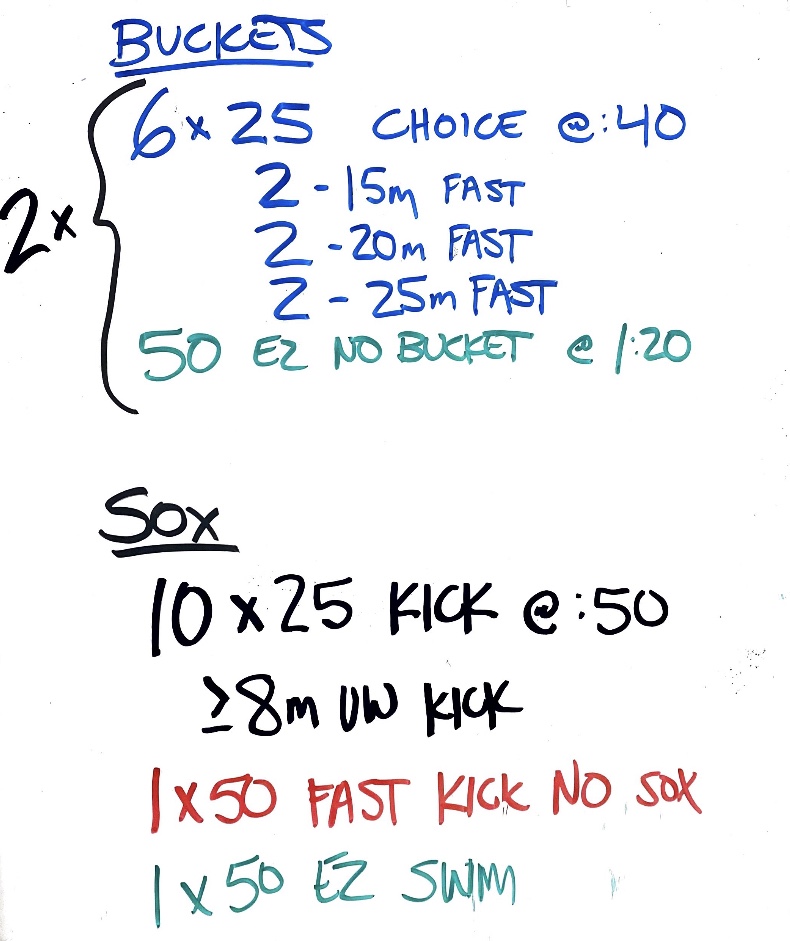 BUCKETS
2x
6x25 CHOICE @:40
2 - 15m FAST
2 - 20m FAST
2 - 25m FAST
50 EZ NO BUCKET @ 1:20
SOX
10 x 25 KICK @:50
≥8m UW KICK
1x50 FAST KICK NO SOX
1x50 EZ SWIM